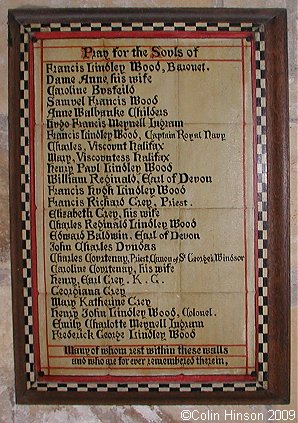 Pray for the Souls of
Francis Lindley Wood, Baronet.
Dame Anne, his wife
Caroline Busfeild
Samuel Francis Wood
Anne Walbanke Childers
Hugo Francis Meynell Ingram
Francis Lindley Wood, Captain Royal Navy
Charles, Viscount Halifax
Mary, Viscountess Halifax
Henry Paul Lindley Wood
William Reginald, Earl of Devon
Francis Hugh Lindley Wood
Francis Richard Grey, Priest.
Elizabeth Grey, his wife
Charles Reginald Lindley Wood
Edward Baldwin, Earl of Devon
John Charles Dundas
Charles Courtenay, Priest, Canon of St George's, Windsor
Caroline Courtenay, his wife
Henry, Earl Grey, K. G.
Georgiana Grey
Mary Katherine Grey
Henry John Lindley Wood, Colonel.
Emily Charlotte Meynell Ingram
Frederick George Lindley Wood
Many of whom rest within these walls
and who are for ever remembered therein,
©Colin Hinson 2009